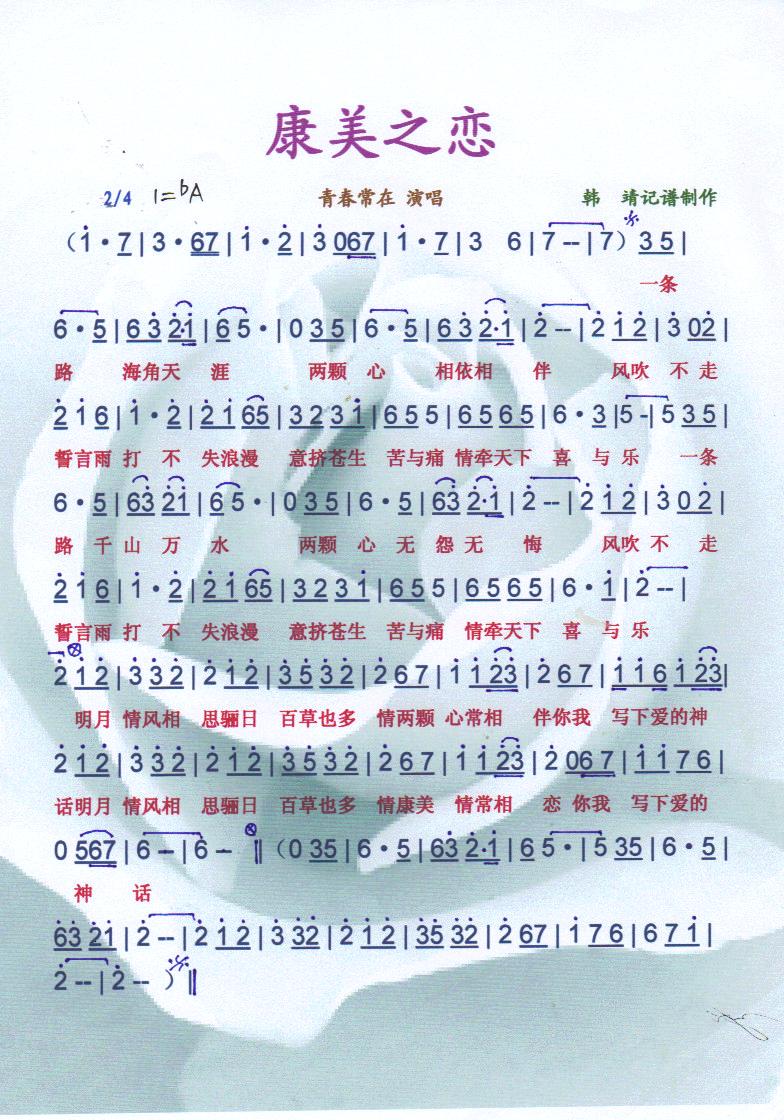 康美之恋
2/4 1=bA 青春常在 演唱 韩 靖记谱制作
(1̇·7|3·67|1̇·2̇|3̇ 067|1̇·7|3 6|7--|7) 3 5|
一条
6·5|6 3̇ 2̇·1̇|6 5·|0 3 5|6·5|6 3̇ 2̇·1̇|2̇--|2̇ 1̇ 2̇|3̇ 02̇|
路 海角天 涯 两颗 心 相依相 伴 风吹 不 走
2̇ 1̇ 6|1̇·2̇|2̇ 1̇ 65|3 2 3 1̇|6 5 5|6 5 6 5|6·3|5-|5 3 5|
誓言雨 打 不 失浪漫 意挤苍生 苦与痛 情牵天下 喜 与 乐 一条
6·5|63̇ 2̇1̇|6 5·|0 3 5|6·5|63̇ 2̇·1̇|2̇--|2̇ 1̇ 2̇|3̇ 0 2̇|
路 千 山 万 水 两颗 心 无 怨 无 悔 风吹 不 走
2̇ 1̇ 6|1̇·2̇|2̇ 1̇ 65|3 2 3 1̇|6 5 5|6 5 6 5|6·1̇|2̇--|
誓言雨 打 不 失浪漫 意挤苍生 苦与痛 情牵天下 喜 与 乐
2̇ 1̇ 2̇|3̇ 3̇ 2̇|2̇ 1̇ 2̇|3̇ 5̇ 3̇ 2̇|2̇ 6 7|1̇ 1̇ 2̇3̇|2̇ 6 7|1̇ 1̇ 6 1̇ 2̇3̇|
明月 情风相 思骊日 百草也多 情两颗 心常相 伴你我 写下爱的神
2̇ 1̇ 2̇|3̇ 3̇ 2̇|2̇ 1̇ 2̇|3̇ 5̇ 3̇ 2̇|2̇ 6 7|1̇ 1̇ 2̇3̇|2̇ 06 7|1̇ 1̇ 7 6|
话明月 情风相 思骊日 百草也多 情康美 情常相 恋 你我 写下爱的
0 567|6-|6-‖(0 35|6·5|63̇ 2̇·1̇|6 5·|5 35|6·5|
神 话
6̇3̇ 2̇1̇|2̇--|2̇ 1̇ 2̇|3̇ 3̇2̇|2̇ 1̇ 2̇|3̇5̇ 3̇2̇|2̇ 67|1̇ 7 6|6 7 1̇|
2̇--|2̇--)‖